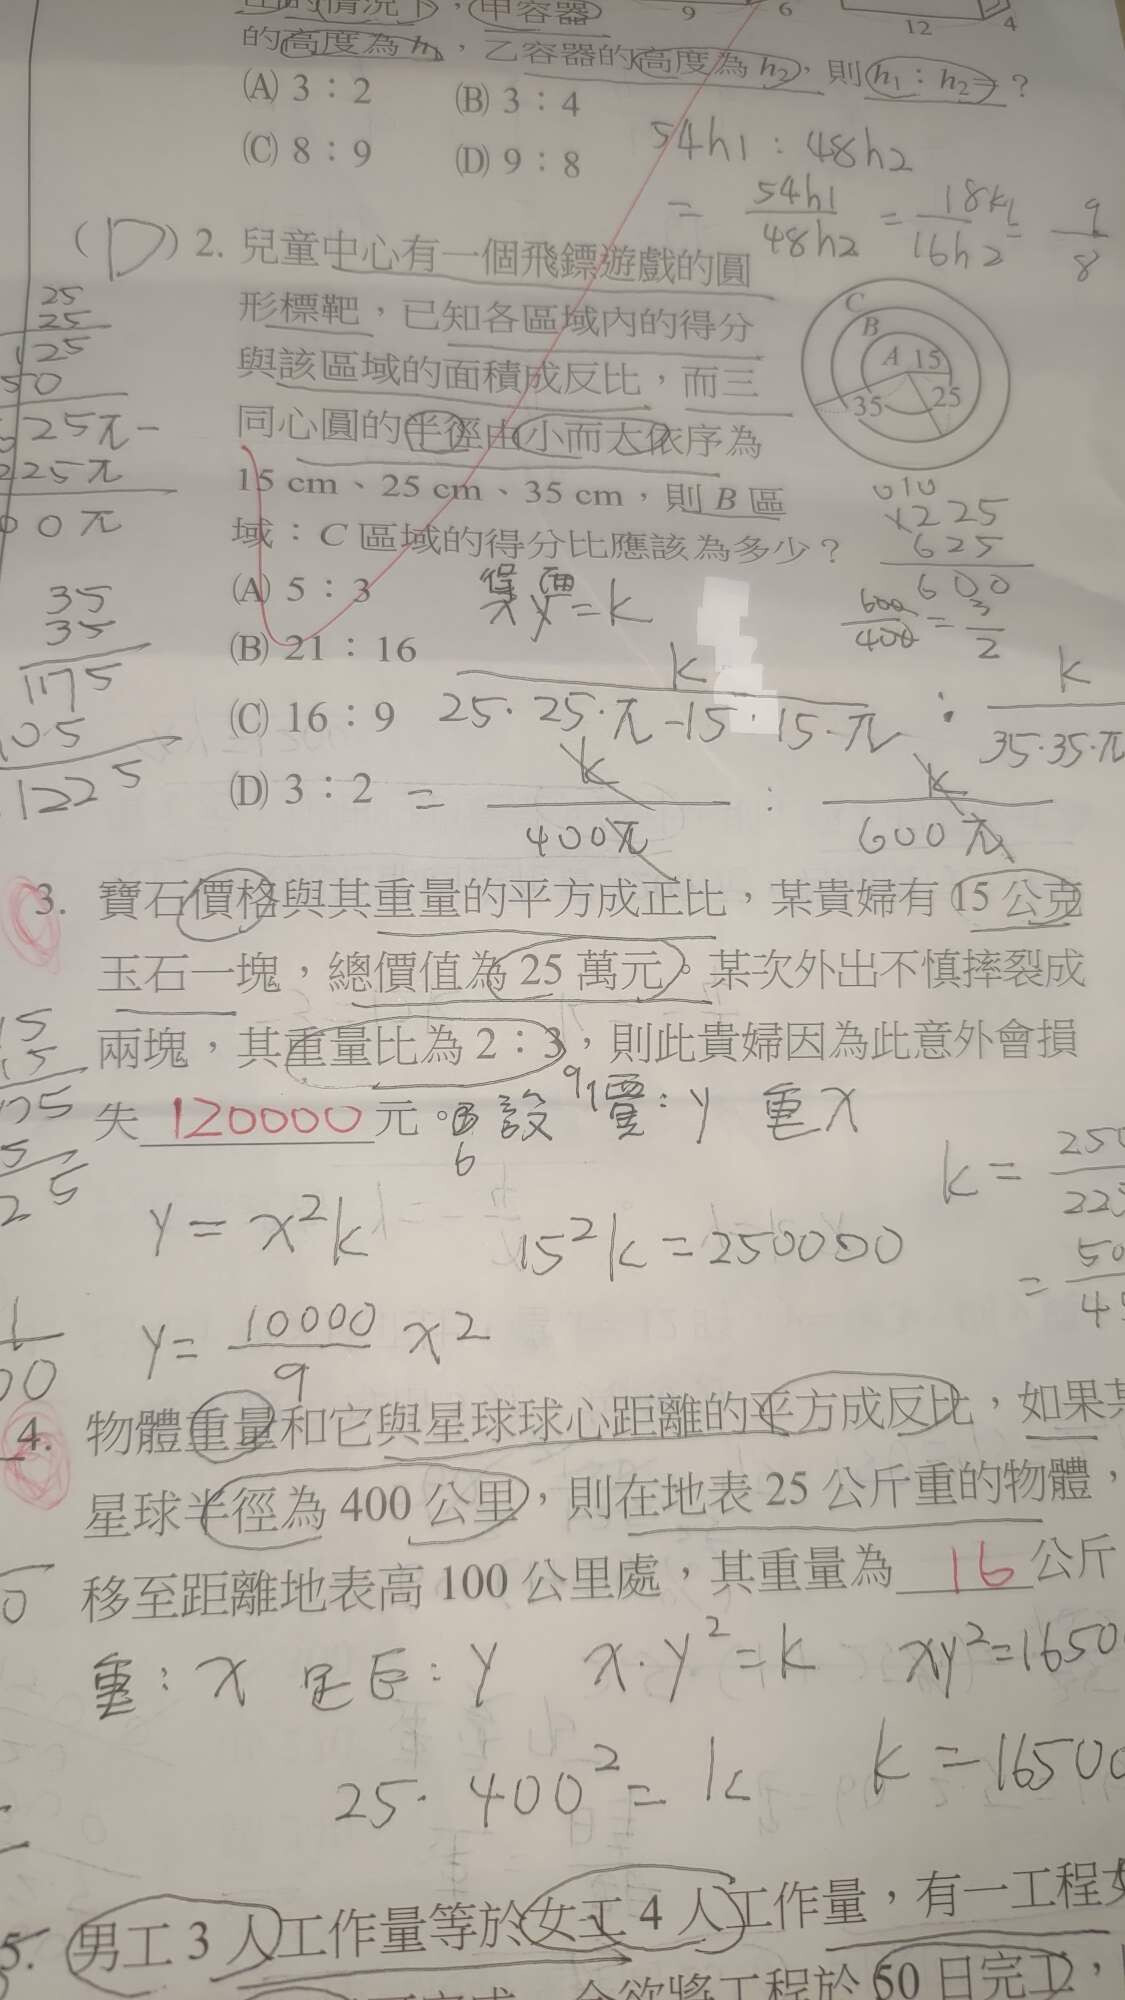 的高度為 h₁，乙容器的高度為 h₂，則 h₁：h₂＝？
9
6
12
4
(A) 3：2
(B) 3：4
(C) 8：9
(D) 9：8
54h1 : 48h2
= 54h1/48h2 = 18h1/16h2 = 9/8
(D) 2. 兒童中心有一個飛鏢遊戲的圓
形標靶，已知各區域內的得分
與該區域的面積成反比，而三
同心圓的半徑由小而大依序為
15 cm、25 cm、35 cm，則 B 區
域：C 區域的得分比應該為多少？
C
B
A 15
25
35
(A) 5：3
(B) 21：16
(C) 16：9
(D) 3：2
25
25
125
50
625π-
225π
00π
35
35
175
105
1225
1225
625
600
600/400 = 3/2
xy=k
k/25·25·π-15·15·π : k/35·35·π
= k/400π : k/600π
3. 寶石價格與其重量的平方成正比，某貴婦有 15 公克
玉石一塊，總價值為 25 萬元。某次外出不慎摔裂成
兩塊，其重量比為 2：3，則此貴婦因為此意外會損
失 120000 元。
6 9
設 價：y 重 x
y = x²k
15²k = 250000
k =
y = 10000/9 x²
4. 物體重量和它與星球球心距離的平方成反比，如果某
星球半徑為 400 公里，則在地表 25 公斤重的物體，
移至距離地表高 100 公里處，其重量為 16 公斤
重：x 距：y x·y²=k xy²=1650
25·400²=k k=16500
5. 男工 3 人工作量等於女工 4 人工作量，有一工程
今欲將工程於 60 日完工，